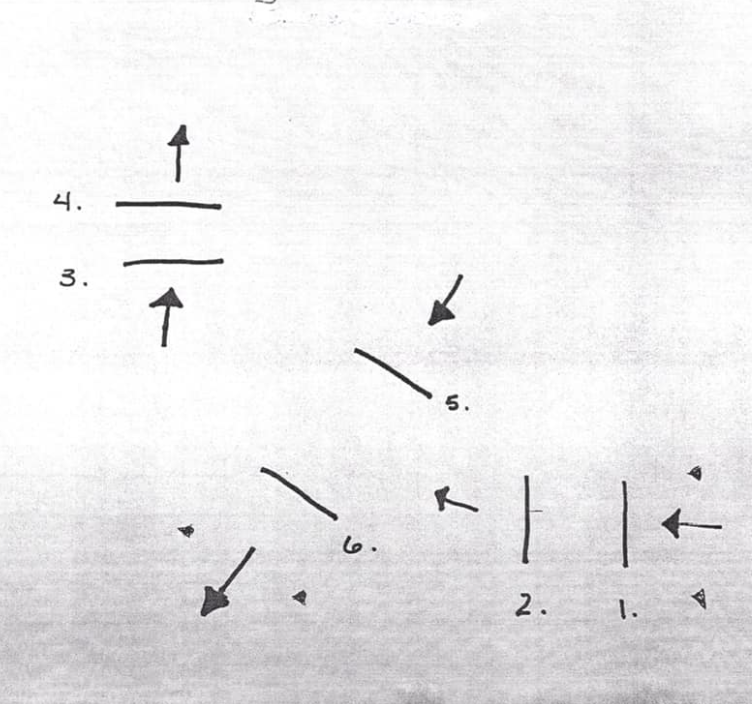 4.
3.
5.
6.
2.
1.